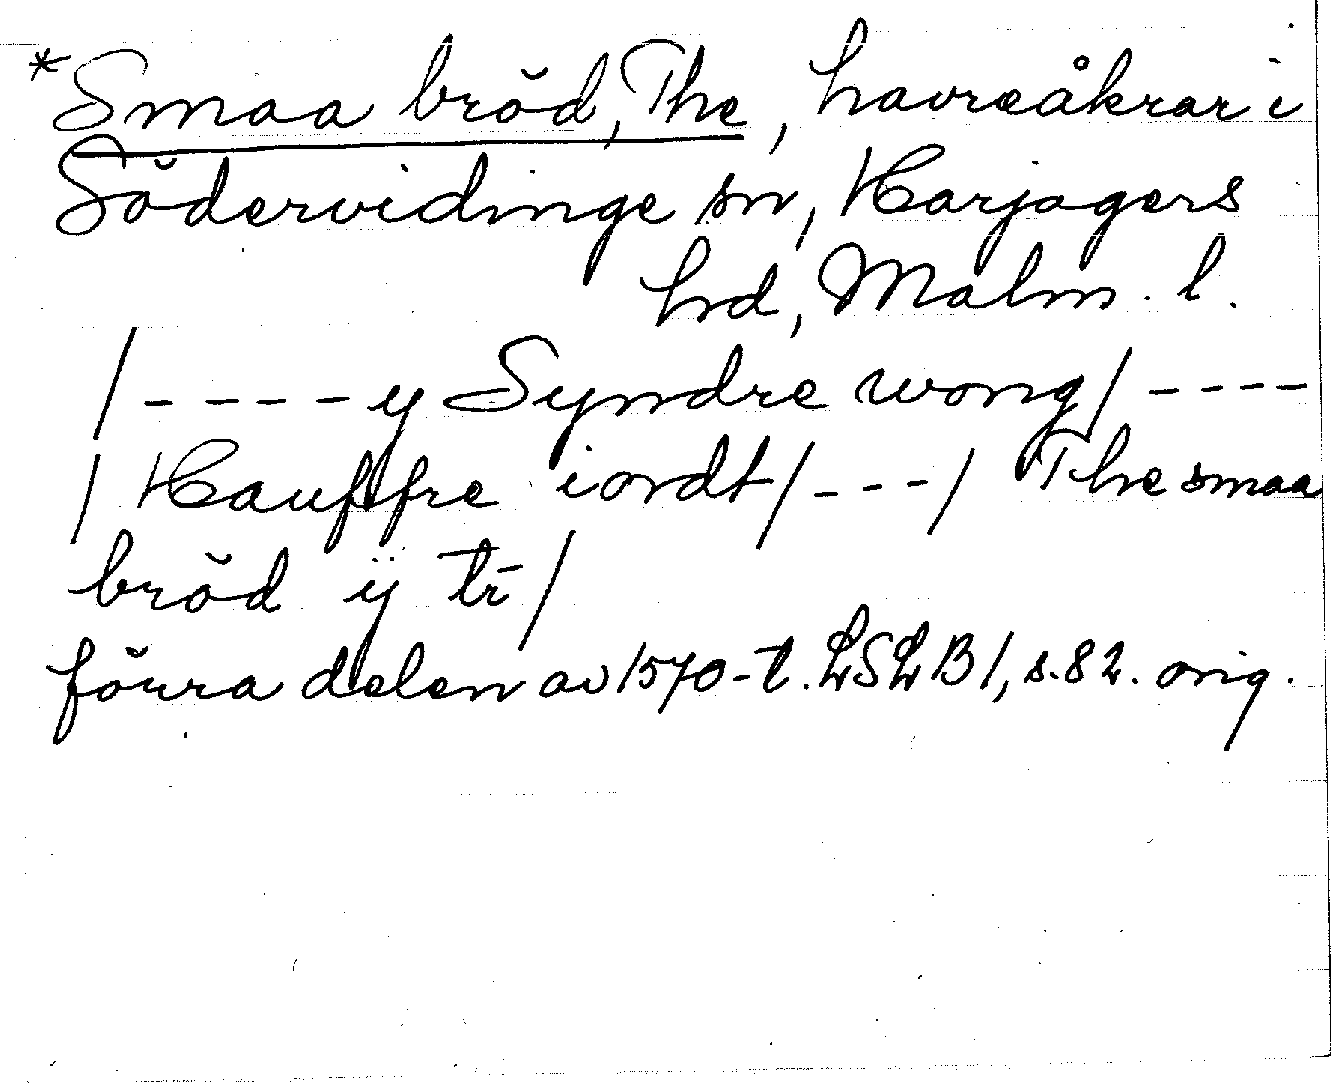 *Smaa brŏd, The, havreåkrar i
Södervidinge sn, Harjagers
hrd, Malm. l.
/----y Syndre wong/----
/Hauffre iordt/---/ The smaa
brŏd ÿ tr̄/
förra delen av 1570-t. LSLB1, s.82. orig.